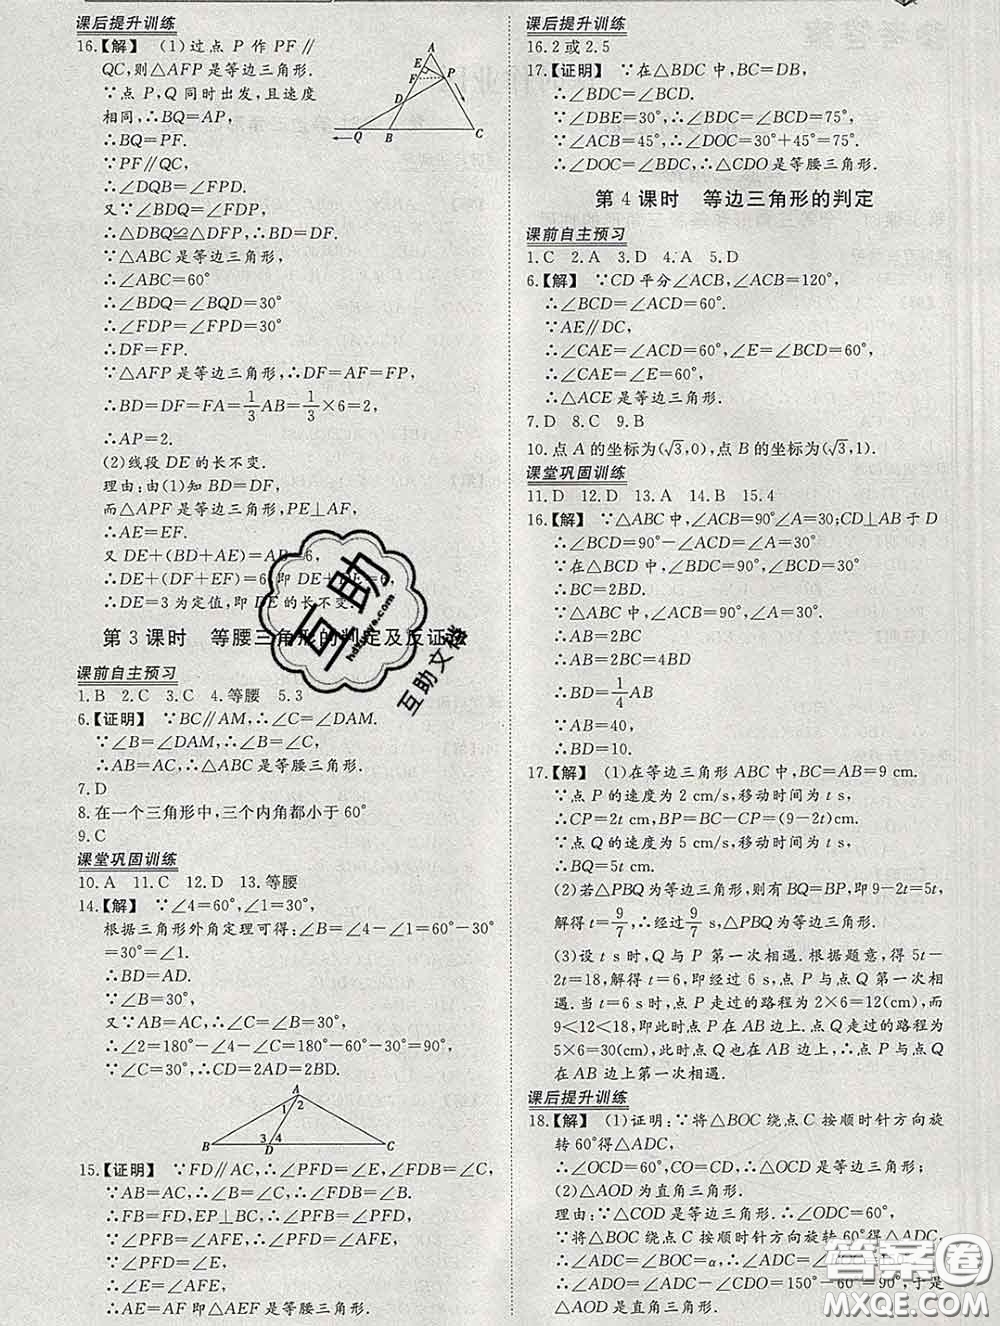 课后提升训练
16.【解】 (1)过点 P 作 PF∥
QC,则△AFP是等边三角形.
∵点 P,Q 同时出发,且速度
相同,∴BQ=AP,
∴BQ=PF.
∵PF∥QC,
∴∠DQB=∠FPD.
又∵∠BDQ=∠FDP,
∴△DBQ≌△DFP,∴BD=DF.
∵△ABC是等边三角形,
∴∠ABC=60°
∴∠BDQ=∠BQD=30°
∴∠FDP=∠FPD=30°
∴DF=FP.
∵△AFP是等边三角形,∴DF=AF=FP.
∴BD=DF=FA=1/3AB=1/3×6=2,
∴AP=2.
(2)线段 DE 的长不变.
理由:由(1)知 BD=DF,
而△APF是等边三角形,PE⊥AF,
∴AE=EF.
又 DE+(BD+AE)=AB=6,
∴DE+(DF+EF)=6,即 DE+DE=6,
∴DE=3为定值,即 DE 的长不变.
A
E
P
F
D
Q
B
C
第 3 课时 等腰三角形的判定及反证法
课前自主预习
1.B 2.C 3.C 4.等腰 5.3
6.【证明】 ∵BC∥AM,∴∠C=∠DAM.
∵∠B=∠DAM,∴∠B=∠C,
∴AB=AC,∴△ABC是等腰三角形.
7.D
8.在一个三角形中,三个内角都小于60°
9.C
课堂巩固训练
10.A 11.C 12.D 13.等腰
14.【解】 ∵∠4=60°,∠1=30°,
根据三角形外角定理可得:∠B=∠4-∠1=60°-30°
=30°=∠1.
∴BD=AD.
∵∠B=30°,
又∵AB=AC,∴∠C=∠B=30°,
∴∠2=180°-∠4-∠C=180°-60°-30°=90°,
∵∠C=30°,∴CD=2AD=2BD.
A
1
2
3
4
B
D
C
15.【证明】 ∵FD∥AC,∴∠PFD=∠E,∠FDB=∠C,
∵AB=AC,∴∠B=∠C,∴∠FDB=∠B.
∴FB=FD,EP⊥BC,∴∠PFB=∠PFD,
∵∠PFB=∠AFE,∴∠PFD=∠AFE,
∴∠E=∠AFE,
∴AE=AF即△AFE是等腰三角形.
课后提升训练
16.2或2.5
17.【证明】 ∵在△BDC中,BC=DB,
∴∠BDC=∠BCD.
∵∠DBE=30°,∴∠BDC=∠BCD=75°,
∵∠ACB=45°,∴∠DOC=30°+45°=75°.
∴∠DOC=∠BDC,∴△CDO是等腰三角形.
第 4 课时 等边三角形的判定
课前自主预习
1.C 2.A 3.D 4.A 5.D
6.【解】 ∵CD平分∠ACB,∠ACB=120°,
∴∠BCD=∠ACD=60°.
∵AE∥DC,
∴∠CAE=∠ACD=60°,∠E=∠BCD=60°,
∴∠CAE=∠E=60°,
∴△ACE是等边三角形.
7.D 8.C 9.B
10.点 A 的坐标为(√3,0),点 B 的坐标为(√3,1).
课堂巩固训练
11.D 12.D 13.A 14.B 15.4
16.【解】 ∵△ABC中,∠ACB=90°∠A=30;CD⊥AB于D
∴∠BCD=90°-∠ACD=30°
∵在△BCD中,∠BDC=90°,∠BCD=30°,
∴BC=2BD.
∵△ABC中,∠ACB=90°,∠A=30°,
∴AB=2BC
∴AB=2BC=4BD
∴BD=1/4 AB
∵AB=40,
∴BD=10.
17.【解】 (1)在等边三角形 ABC 中,BC=AB=9 cm.
∵点 P 的速度为 2 cm/s,移动时间为 t s,
∴CP=2t cm,BP=BC-CP=(9-2t)cm.
∵点 Q 的速度为 5 cm/s,移动时间为 t s,
∴BQ=5t cm.
(2)若△PBQ为等边三角形,则有 BQ=BP,即 9-2t=5t,
解得 t=9/7,∴经过 9/7 s,△PBQ为等边三角形.
(3)设 t s时,Q 与 P 第一次相遇. 根据题意,得 5t-
2t=18,解得 t=6,即经过 6 s,点 P 与点 Q 第一次相
遇. 当 t=6 s时,点 P 走过的路程为 2×6=12(cm),而
9<12<18,即此时点 P 在 AB 边上. 点 Q 走过的路程为
5×6=30(cm),此时点 Q 也在 AB 边上,∴点 P 与点 Q
在 AB 边上第一次相遇.
课后提升训练
18.【解】 (1)证明:∵将△BOC绕点 C 按顺时针方向旋
转60°得△ADC,
∴∠OCD=60°,CO=CD,∴△OCD是等边三角形;
(2)△AOD为直角三角形.
理由:∵△COD是等边三角形.∴∠ODC=60°,
∵将△BOC绕点C按顺时针方向旋转60°得△ADC,
∴∠ADC=∠BOC=α,∴∠ADC=∠BOC=150°,
∴∠ADO=∠ADC-∠CDO=150°-60°=90°,于是
△AOD是直角三角形.
互助
hdzuoye.com
互助文档
答案圈
MXQE.COM